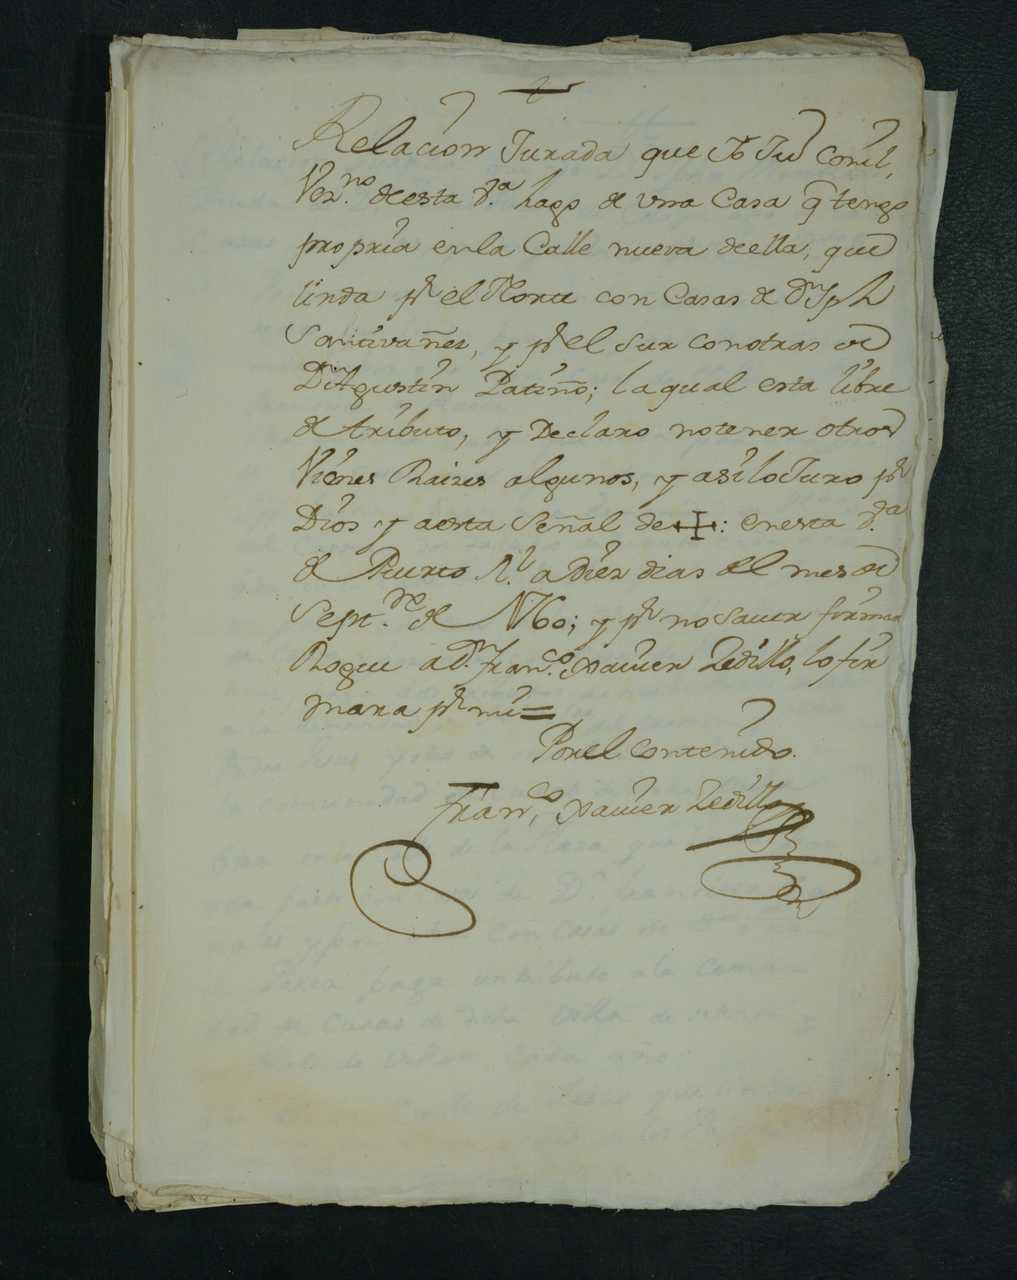 Relacion Jurada que Yo Jun Conil,
Vez.no de esta v.a hago de vna Casa q tengo
propria en la Calle nueva de ella, que
linda pr el Norte con Casas de Dn Jph
Santivañes, y pr el Sur con otras de
Dn Agustin Patiño; la qual esta libre
de tributo, y Declaro no tener otros
Vienes Raizes algunos, y asi lo Juro pr
Dios y a esta Señal de +: en esta v.a
de Puerto R.l a Diez dias del mes de
Sept.re de 1760; y pr no saver firmar
Rogue a Dn Fran.co Xavier Zedillo, lo fir
mara pr mi =
Por el contenido.
Fran.co Xavier Zedillo